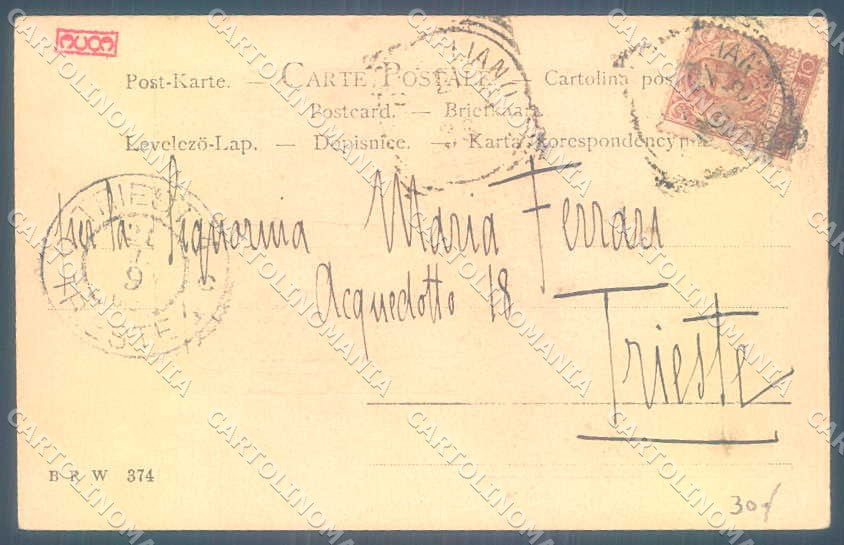 Post-Karte. — CARTE POSTALE. — Cartolina postale
Postcard. — Briefkaart.
Levelező-Lap. — Dopisnice. — Karta korespondencyjna
Signorina Maria Ferrari
Acquedotto 18
Trieste
B R W 374
30
CARTOLINOMANIA